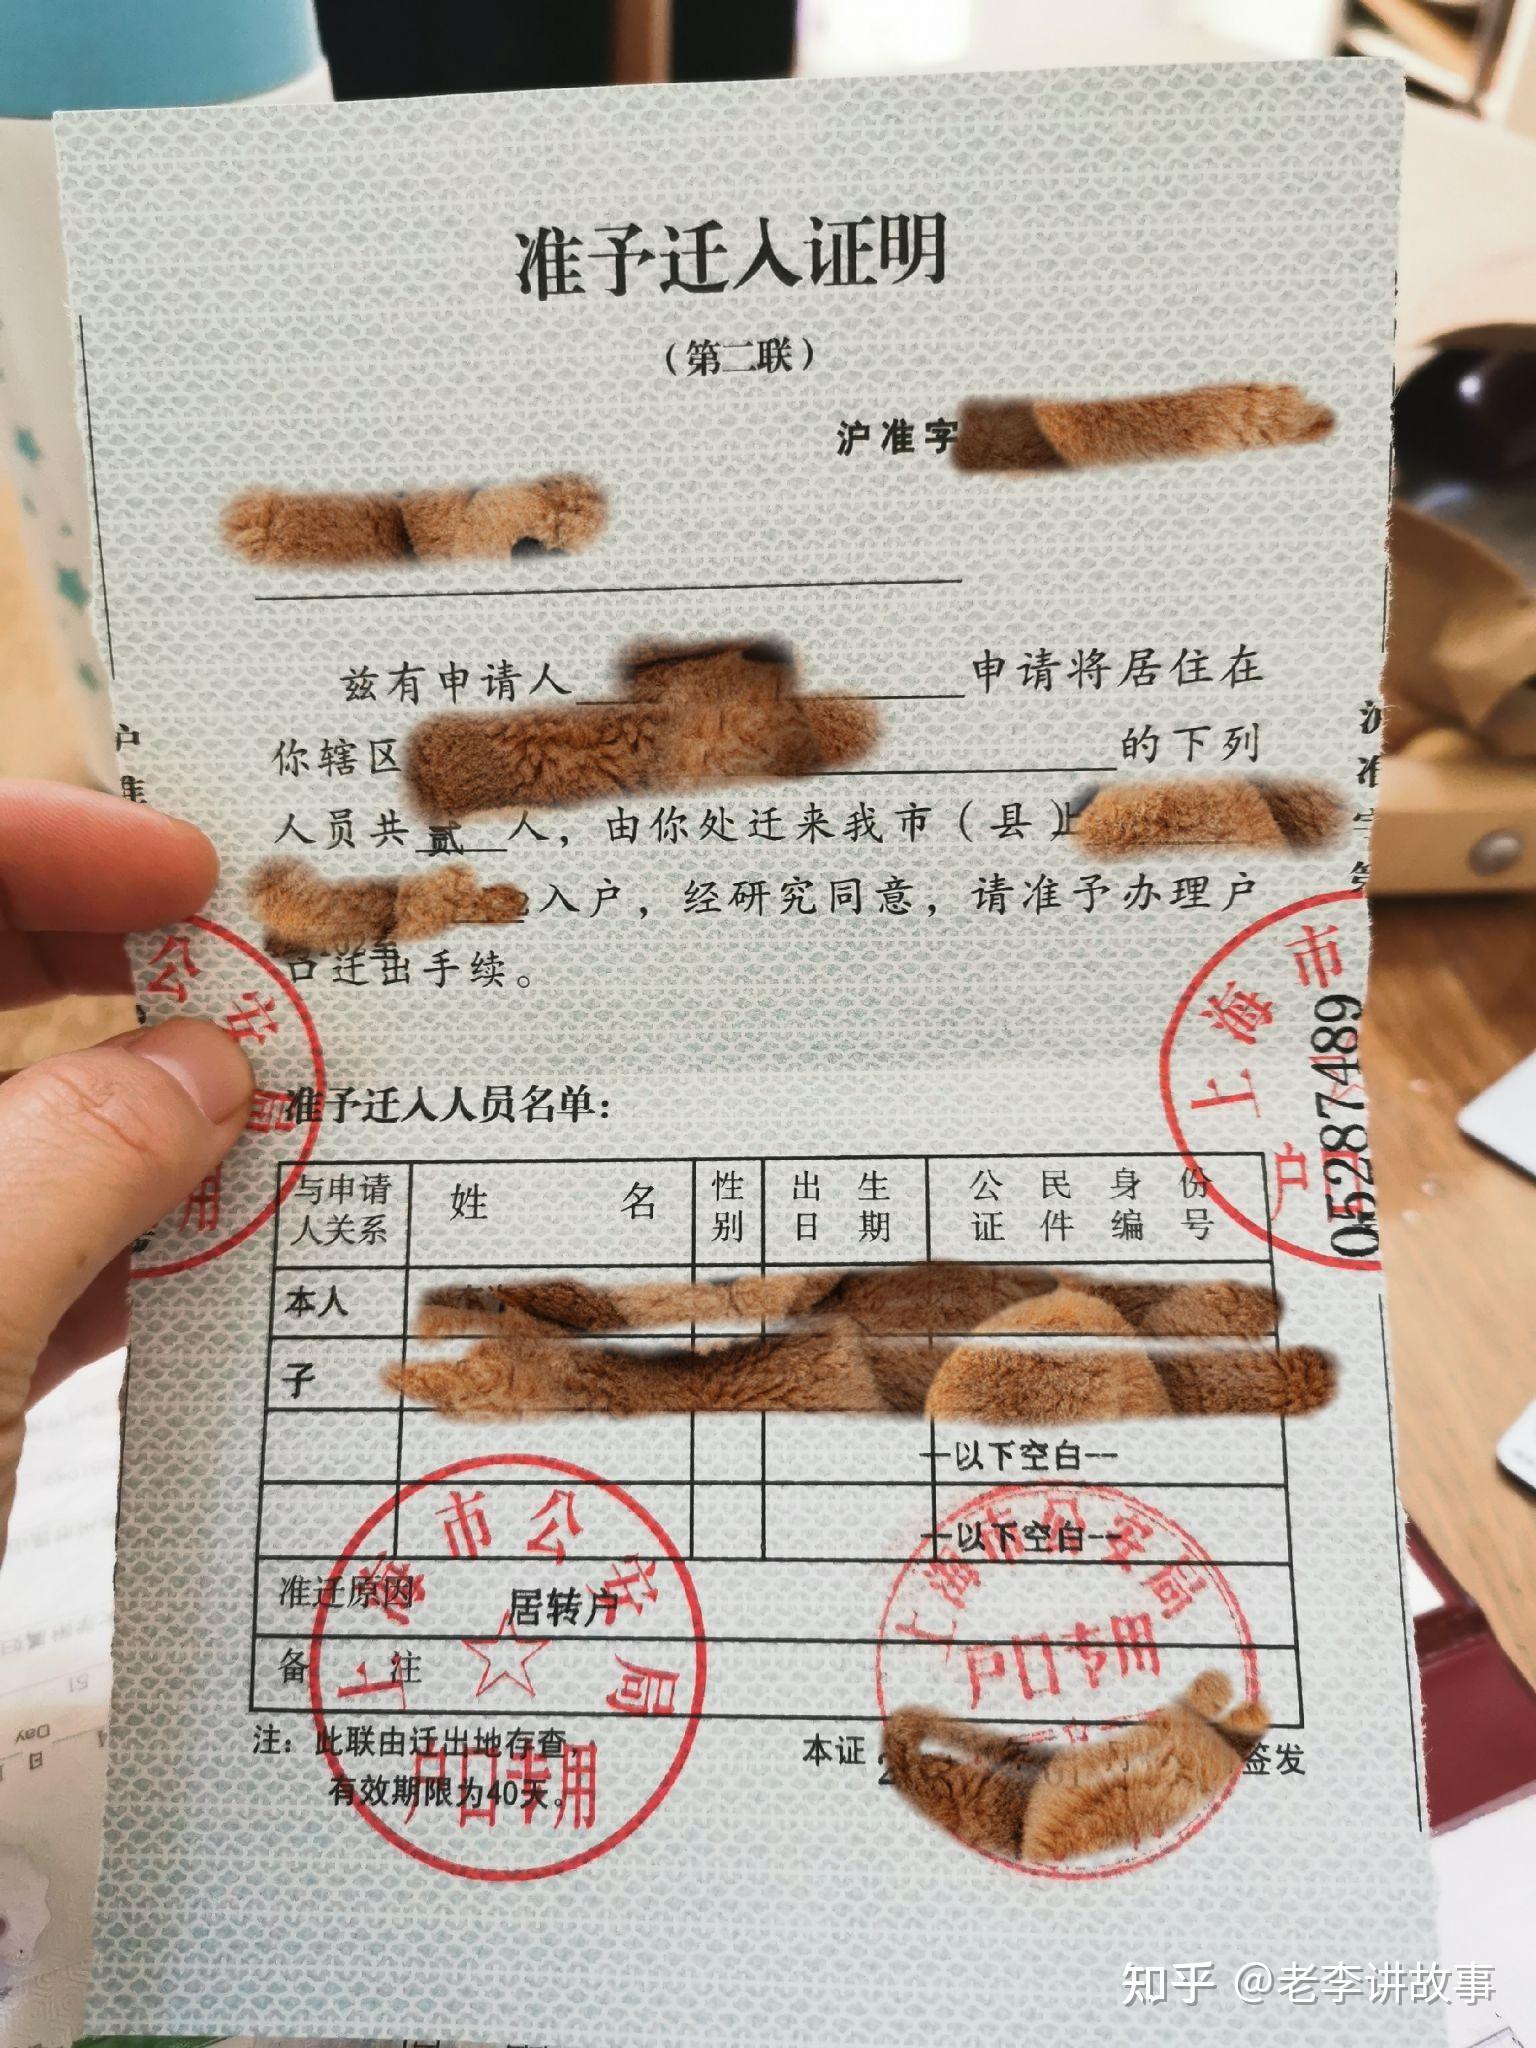 准予迁入证明
（第二联）
沪准字
兹有申请人 申请将居住在
你辖区 的下列
人员共贰人，由你处迁来我市（县）上
入户，经研究同意，请准予办理户
口迁出手续。
户准
沪准字第
公安局
用
上海市
户
05287489
准予迁入人员名单：
与申请人关系 姓名 性别 出生日期 公民身份证件编号
本人
子
—以下空白--
—以下空白--
准迁原因 居转户
备注
注：此联由迁出地存查，
有效期限为40天。
本证 签发
上海市公安局
户口专用
上海市公安局
户口专用
知乎 @老李讲故事